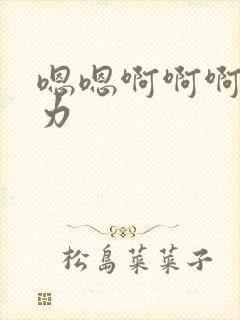 嗯嗯啊啊啊
力
松島菜菜子